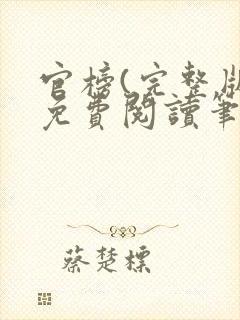 官榜(完整版
免費閱讀筆
蔡楚標